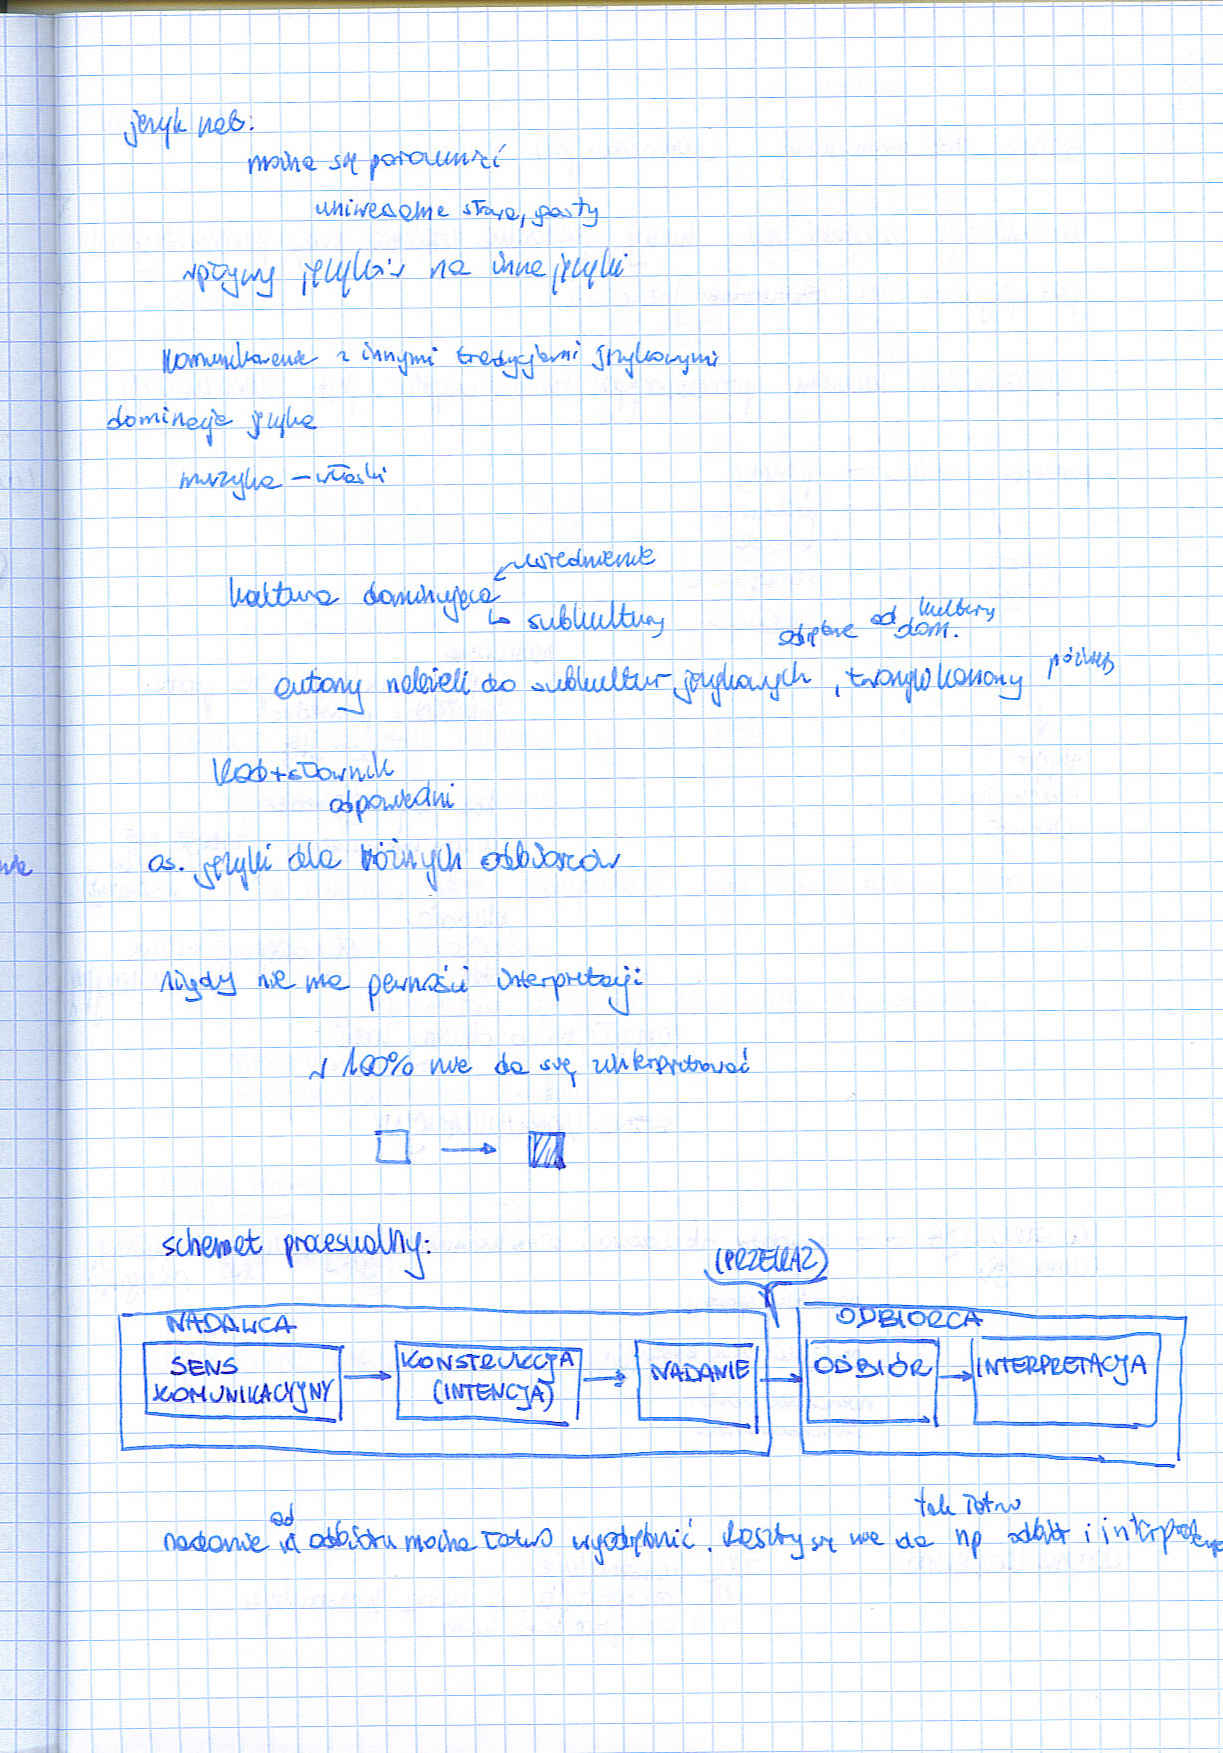 język nat:
można się porozumieć
uniwersalne słowa, gesty
wpływy języków na inne języki
komunikowanie z innymi tradycjami językowymi
dominacja języka
muzyka – włoski
uśrednienie
kultura dominująca
↳ subkultury
odrębne od kultury dom.
autorzy należeli do subkultur językowych, tworzyli kanony
kod + słownik
odpowiedni
os. języki dla różnych odbiorców
nigdy nie ma pewności interpretacji
w 100% nie da się zinterpretować
schemat procesualny:
(PRZEKAZ)
NADAWCA ODBIORCA
SENS KOMUNIKACYJNY → KONSTRUKCJA (INTENCJA) → NADANIE → ODBIÓR → INTERPRETACJA
tak łatwo
nadanie od odbioru można łatwo wyodrębnić. Reszty się nie da np odbiór i interpretacja